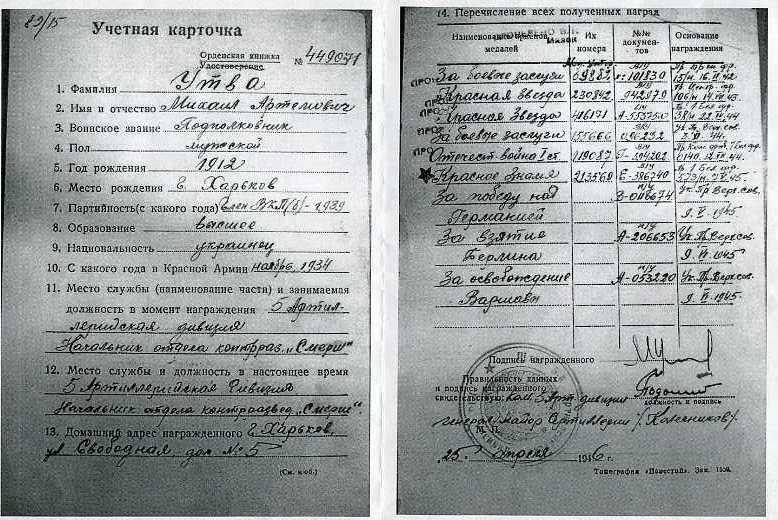 89/15
Учетная карточка
Орденская книжка
Удостоверение № 449071
1. Фамилия Утва
2. Имя и отчество Михаил Артемович
3. Воинское звание Подполковник
4. Пол мужской
5. Год рождения 1912
6. Место рождения г. Харьков
7. Партийность (с какого года) Член ВКП(б) - 1939
8. Образование высшее
9. Национальность украинец
10. С какого года в Красной Армии ноябрь, 1934
11. Место службы (наименование части) и занимаемая
должность в момент награждения 5 Артил-
лерийская дивизия
Начальник отдела контрраз. „Смерш"
12. Место службы и должность в настоящее время
5 Артиллерийская дивизия
Начальник отдела контрразвед. „Смерш"
13. Домашний адрес награжденного г. Харьков,
ул Свободная дом № 5
(См. н об.)
14. Перечисление всех полученных наград
Наименование орденов,
медалей
Их
номера
№№
докумен-
тов
Основание
награждения
За боевые заслуги 69882 101830
Красная Звезда 230842 942879
Красная Звезда 416171 А-553750
За боевые заслуги 155666
Отечест. война I ст. 119087
Красное Знамя 213560 Е-386740
За победу над
Германией 9.V.1945
За взятие А-206653
Берлина 9.VI.1945
За освобождение А-053220
Варшавы 9.VI.1945.
Подпись награжденного
Правильность данных
и подпись награжденного
свидетельствую: ком. 5 Арт. дивизии
должность и подпись
генерал майор Артиллерии
М. П.
„25" апреля 1946 г.
Типография «Известий». Зак.